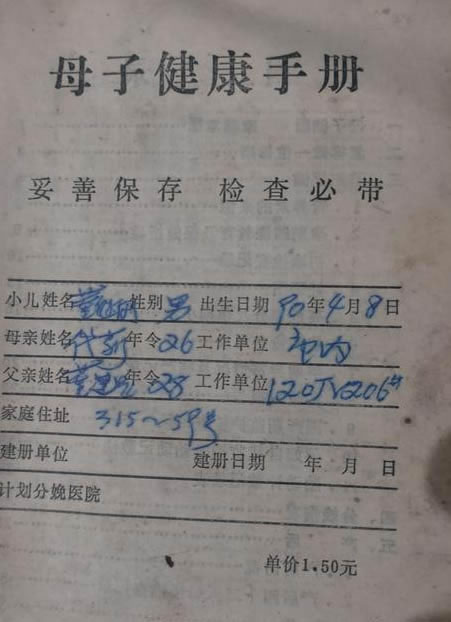 母子健康手册
妥善保存 检查必带
小儿姓名 性别 男 出生日期 90年4月8日
母亲姓名 年令 26 工作单位
父亲姓名 年令 28 工作单位
家庭住址 315~59号
建册单位 建册日期 年 月 日
计划分娩医院
单价1.50元